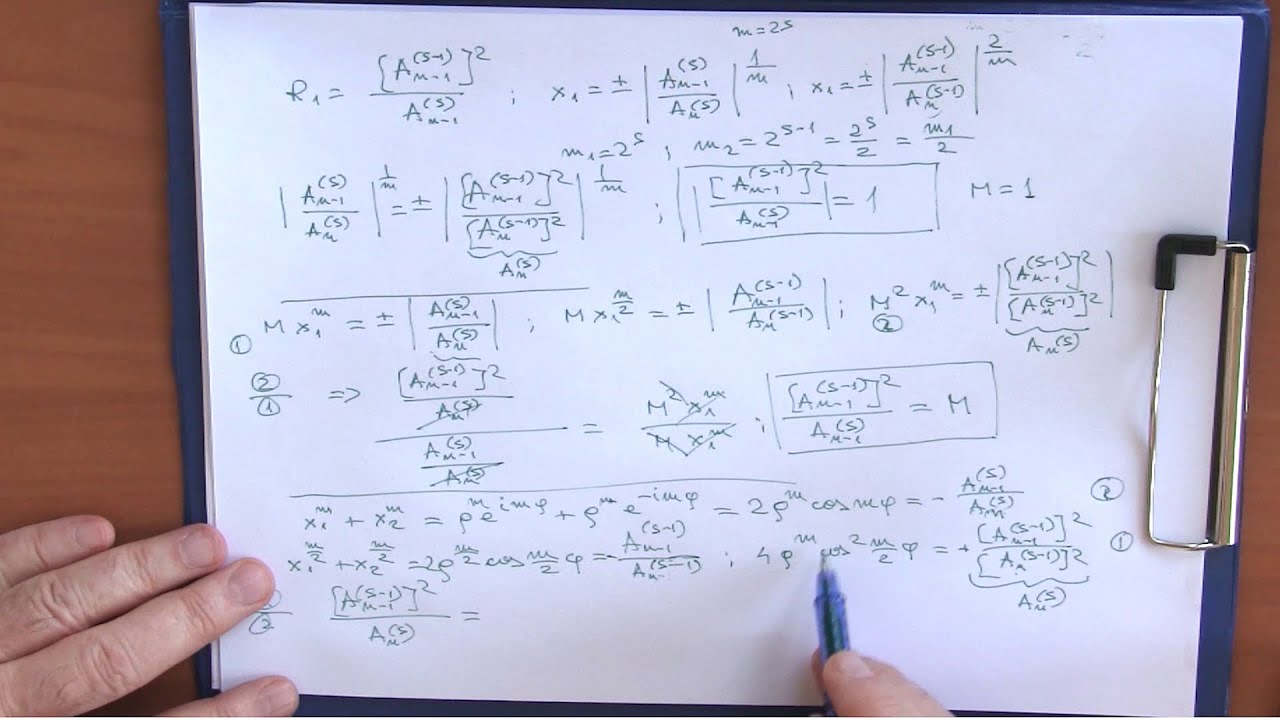 m=2^s
R_1 = [A_{n-1}^{(s-1)}]^2 / A_{n-1}^{(s)} ; x_1 = ± |A_{n-1}^{(s)} / A_n^{(s)}|^{1/m} ; x_1 = ± |A_{n-1}^{(s-1)} / A_n^{(s-1)}|^{2/m}
m_1=2^s ; m_2 = 2^{s-1} = 2^s/2 = m_1/2
|A_{n-1}^{(s)} / A_n^{(s)}|^{1/m} = ± |[A_{n-1}^{(s-1)}]^2 / [A_n^{(s-1)}]^2|^{1/m} ; |[A_{n-1}^{(s-1)}]^2 / A_{n-1}^{(s)}| = 1 M=1
A_n^{(s)}
① M x_1^m = ± |A_{n-1}^{(s)} / A_n^{(s)}| ; M x_1^{m/2} = ± |A_{n-1}^{(s-1)} / A_n^{(s-1)}| ; ② M^2 x_1^m = ± |[A_{n-1}^{(s-1)}]^2 / [A_n^{(s-1)}]^2|
A_n^{(s)}
②/① => ([A_{n-1}^{(s-1)}]^2 / A_n^{(s)}) / (A_{n-1}^{(s)} / A_n^{(s)}) = M^2 x_1^m / M x_1^m ; [A_{n-1}^{(s-1)}]^2 / A_{n-1}^{(s)} = M
x_1^m + x_2^m = ρ^m e^{imφ} + ρ^m e^{-imφ} = 2ρ^m cos mφ = - A_{n-1}^{(s)} / A_n^{(s)} ②
x_1^{m/2} + x_2^{m/2} = 2ρ^{m/2} cos m/2 φ = - A_{n-1}^{(s-1)} / A_n^{(s-1)} ; 4ρ^m cos^2 m/2 φ = + [A_{n-1}^{(s-1)}]^2 / [A_n^{(s-1)}]^2 ①
A_n^{(s)}
/② [A_{n-1}^{(s-1)}]^2 / A_n^{(s)} =